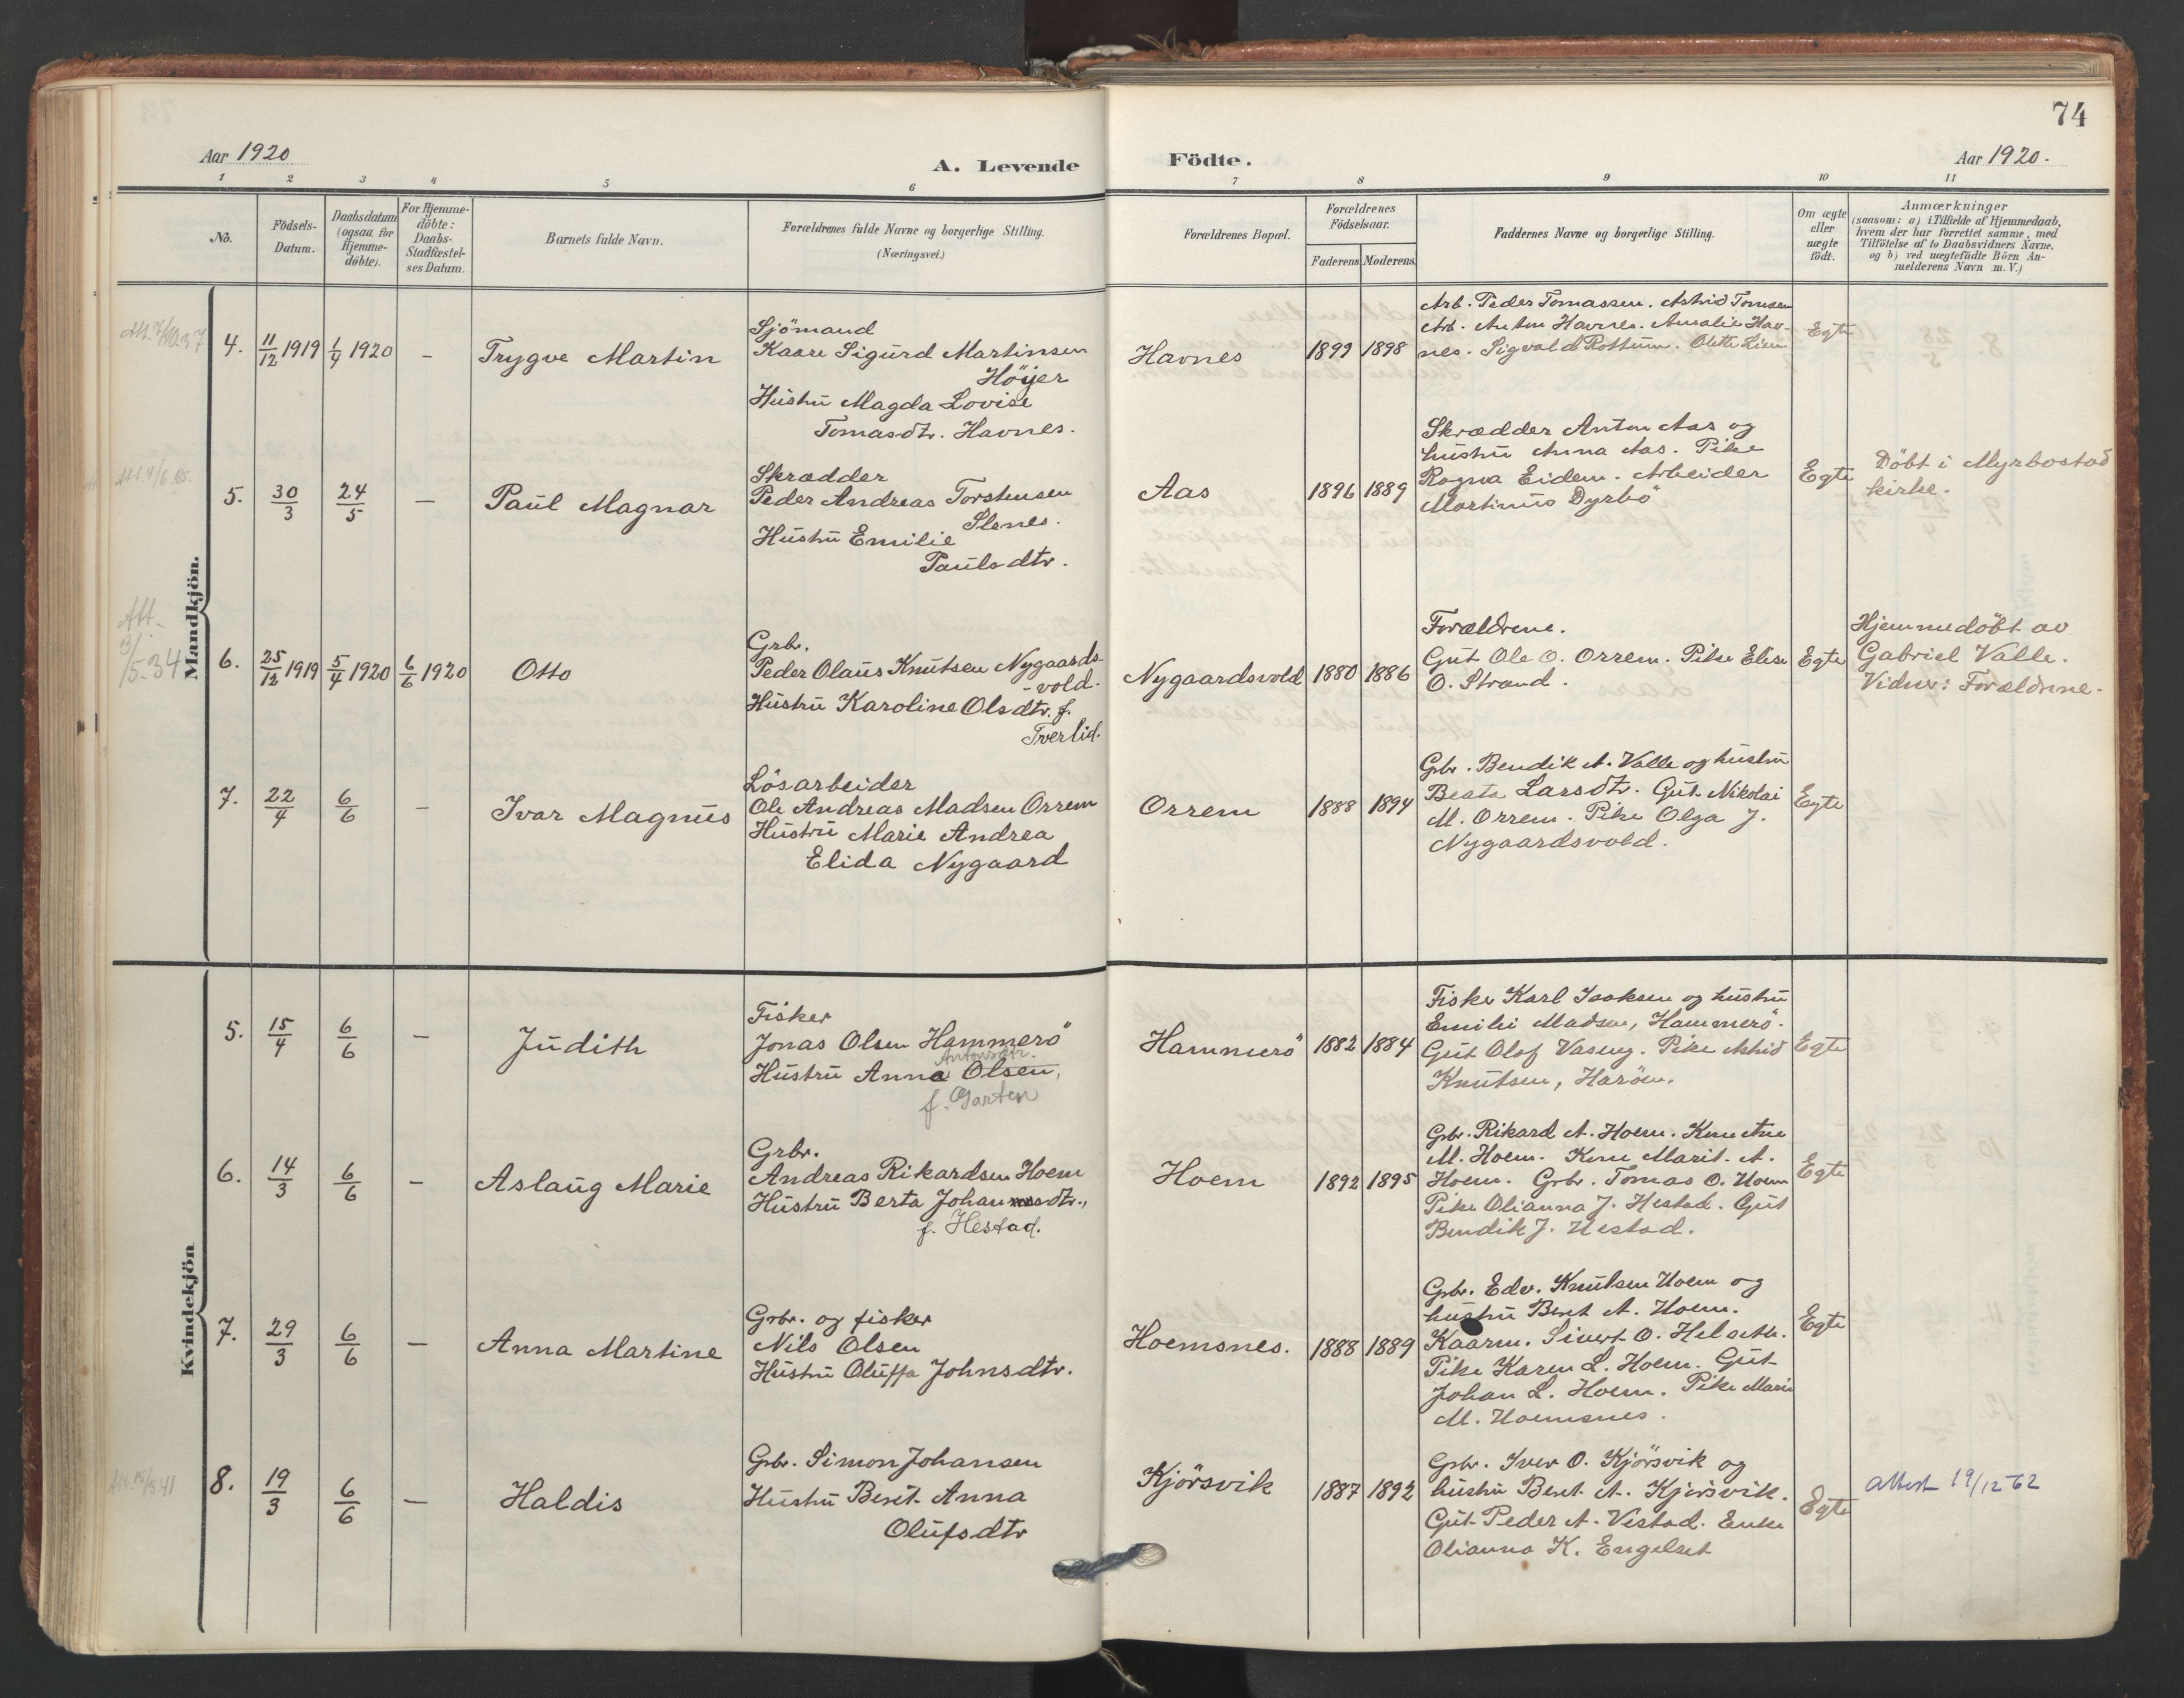 74
Aar 1920
A. Levende Födte.
Aar 1920.
1 2 3 4 5 6 7 8 9 10 11
No.
Födsels-
Datum.
Daabsdatum
(ogsaa for
Hjemme-
döbte).
For Hjemme-
döbte:
Daabs-
Stadfæstel-
ses Datum.
Barnets fulde Navn.
Forældrenes fulde Navne og borgerlige Stilling.
(Næringsvei.)
Forældrenes Bopæl.
Forældrenes
Födselsaar.
Faderens Moderens
Faddernes Navne og borgerlige Stilling.
Om ægte
eller
uægte
födt.
Anmærkninger
(saasom: a) i Tilfælde af Hjemmedaab,
hvem der har forrettet samme, med
Tilföielse af to Daabsvidners Navne.
og b) ved uægtefödte Börn An-
melderens Navn m. V.)
Mandkjön.
4. 11/12 1919 1/4 1920 – Trygve Martin
Sjömand
Kaare Sigurd Martinsen
Höyer
Hustru Magda Lovise
Tomasdtr. Havnes.
Havnes 1899 1898
Arb. Peder Tomassen. Astrid Tomsen
Arb. Anton Havnes. Amalie Hav-
nes. Sigvald Rottum. Olette Lien
Egte
5. 30/3 24/5 – Paul Magnar
Skrædder
Peder Andreas Torstensen
Stenes.
Hustru Emilie
Paulsdtr.
Aas 1896 1889
Skrædder Anton Aas og
hustru Anna Aas. Pike
Ragna Eidem. Arbeider
Martinus Dyrbö
Egte
Döbt i Myrbostad
kirke.
Att.
3/5-34
6. 25/12 1919 5/4 1920 6/6 1920 Otto
Grbr.
Peder Olaus Knutsen Nygaards-
-vold.
Hustru Karoline Olsdtr. f.
Tverlid.
Nygaardsvold 1880 1886
Forældrene.
Gut Ole O. Orrem. Pike Elise
O. Strand.
Egte
Hjemmedöbt av
Gabriel Valle.
Vidner: Forældrene.
7. 22/4 6/6 – Ivar Magnus
Lösarbeider
Ole Andreas Madsen Orrem
Hustru Marie Andrea
Elida Nygaard
Orrem 1888 1894
Grbr. Bendik A. Valle og hustru
Beata Larsdtr. Gut Nikolai
M. Orrem. Pike Olga J.
Nygaardsvold.
Egte
Kvindekjön
5. 15/4 6/6 – Judith
Fisker
Jonas Olsen Hammerö
Antonsdtr.
Hustru Anna Olsen,
f. Garten
Hammerö 1882 1884
Fisker Karl Isaksen og hustru
Emilie Madsen, Hammerö.
Gut Olof Vaseng. Pike Astrid
Knutsen, Haröen.
Egte
6. 14/3 6/6 – Aslaug Marie
Grbr.
Andreas Rikardsen Hoem
Hustru Berta Johansdtr.,
f. Hestad.
Hoem 1892 1895
Grbr. Rikard A. Hoem. Kone Ane
M. Hoem. Kone Marit A.
Hoem. Grbr. Tomas O. Hoem
Pike Olianna J. Hestad. Gut
Bendik J. Hestad.
Egte
7. 29/3 6/6 – Anna Martine
Grbr. og fisker
Nils Olsen
Hustru Oluffa Johnsdtr.
Hoemsnes. 1888 1889
Grbr. Edv. Knutsen Hoem og
hustru Beret A. Hoem.
Kaarm. Sivert O. Helseth.
Pike Karen L. Hoem. Gut
Johan L. Hoem. Pike Marie
M. Hoemsnes.
Egte
Att. 15/3.41
8. 19/3 6/6 – Haldis
Grbr. Simon Johansen
Hustru Berit Anna
Olufsdtr
Kjörsvik 1887 1892
Grbr. Iver O. Kjörsvik og
hustru Beret A. Kjörsvik.
Gut Peder A. Vestad. Enke
Olianna K. Engelset
Egte
attest 19/12-62